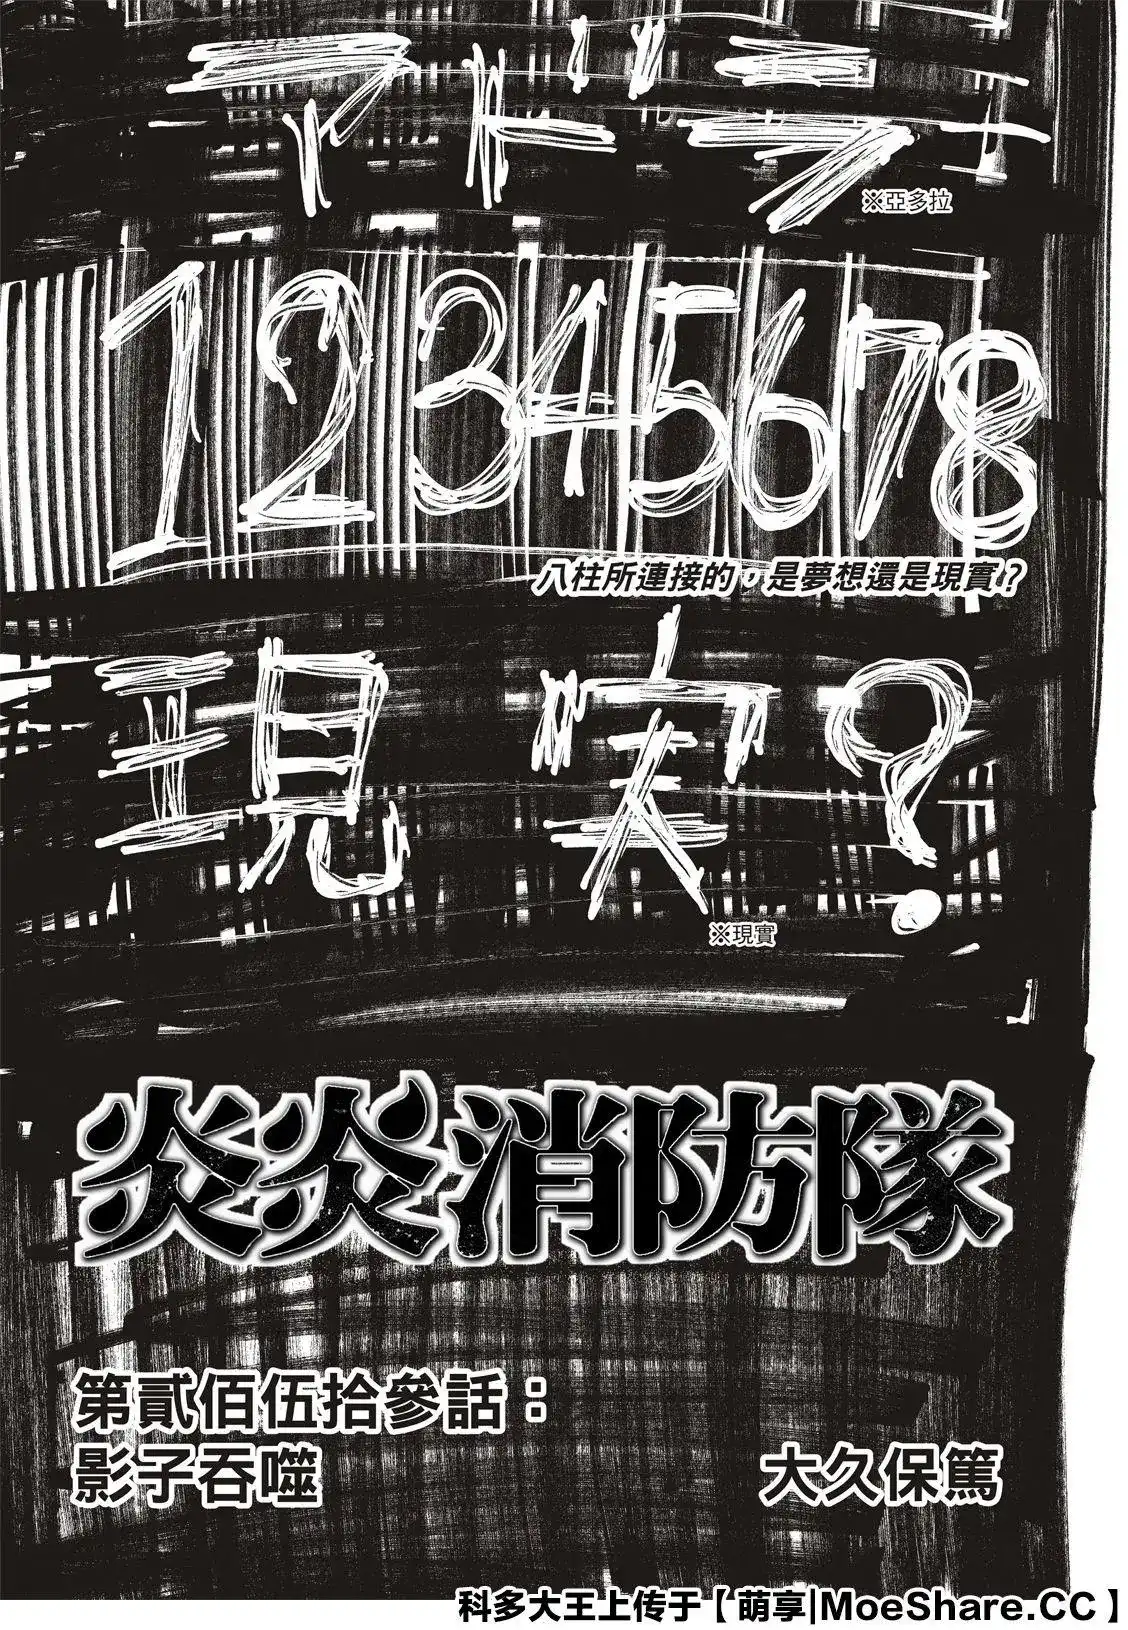 アドラ
※亞多拉
12345678
八柱所連接的，是夢想還是現實？
現実？
※現實
炎炎消防隊
第貳佰伍拾參話：
影子吞噬
大久保篤
科多大王上传于【萌享|MoeShare.CC】